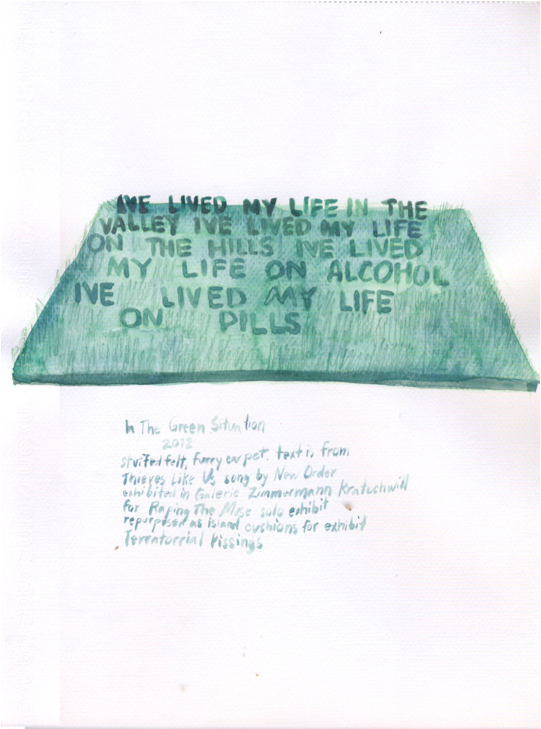 IVE LIVED MY LIFE IN THE
VALLEY IVE LIVED MY LIFE
ON THE HILLS IVE LIVED
MY LIFE ON ALCOHOL
IVE LIVED MY LIFE
ON PILLS
In The Green Situation
2012
stuffed felt, furry carpet. text is from
Thieves Like Us song by New Order
exhibited in Galerie Zimmermann Kratochwill
for Raping The Muse solo exhibit
repurposed as island cushions for exhibit
Terratorrial Pissings